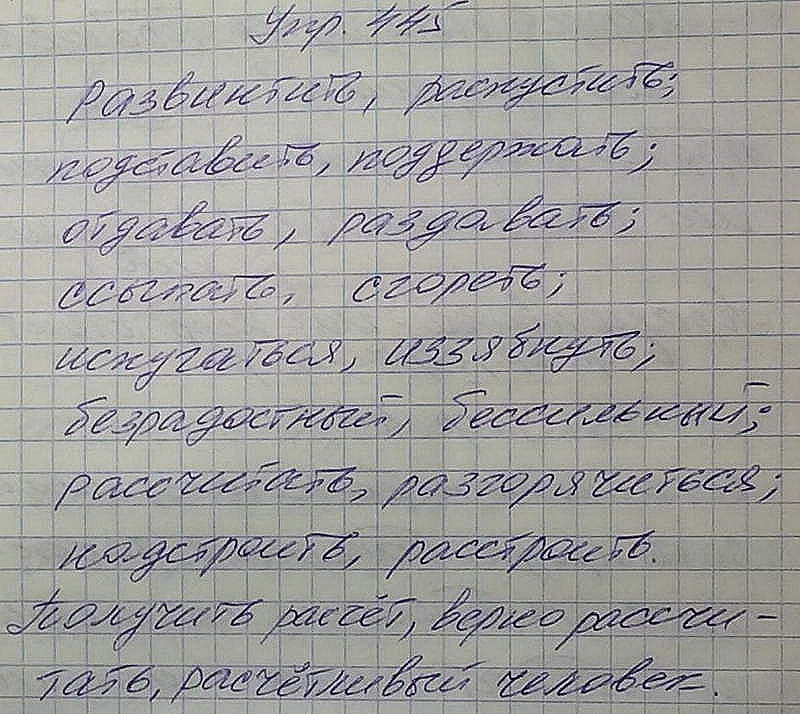 Упр. 445
Развинтить, распустить;
подставить, поддержать;
отдавать, раздавать;
ссыпать, сгореть;
испугаться, иззябнуть;
безрадостный, бессильный;
рассчитать, разгорячиться;
надстроить, расстроить.
Получить расчёт, верно рассчи-
тать, расчётливый человек.